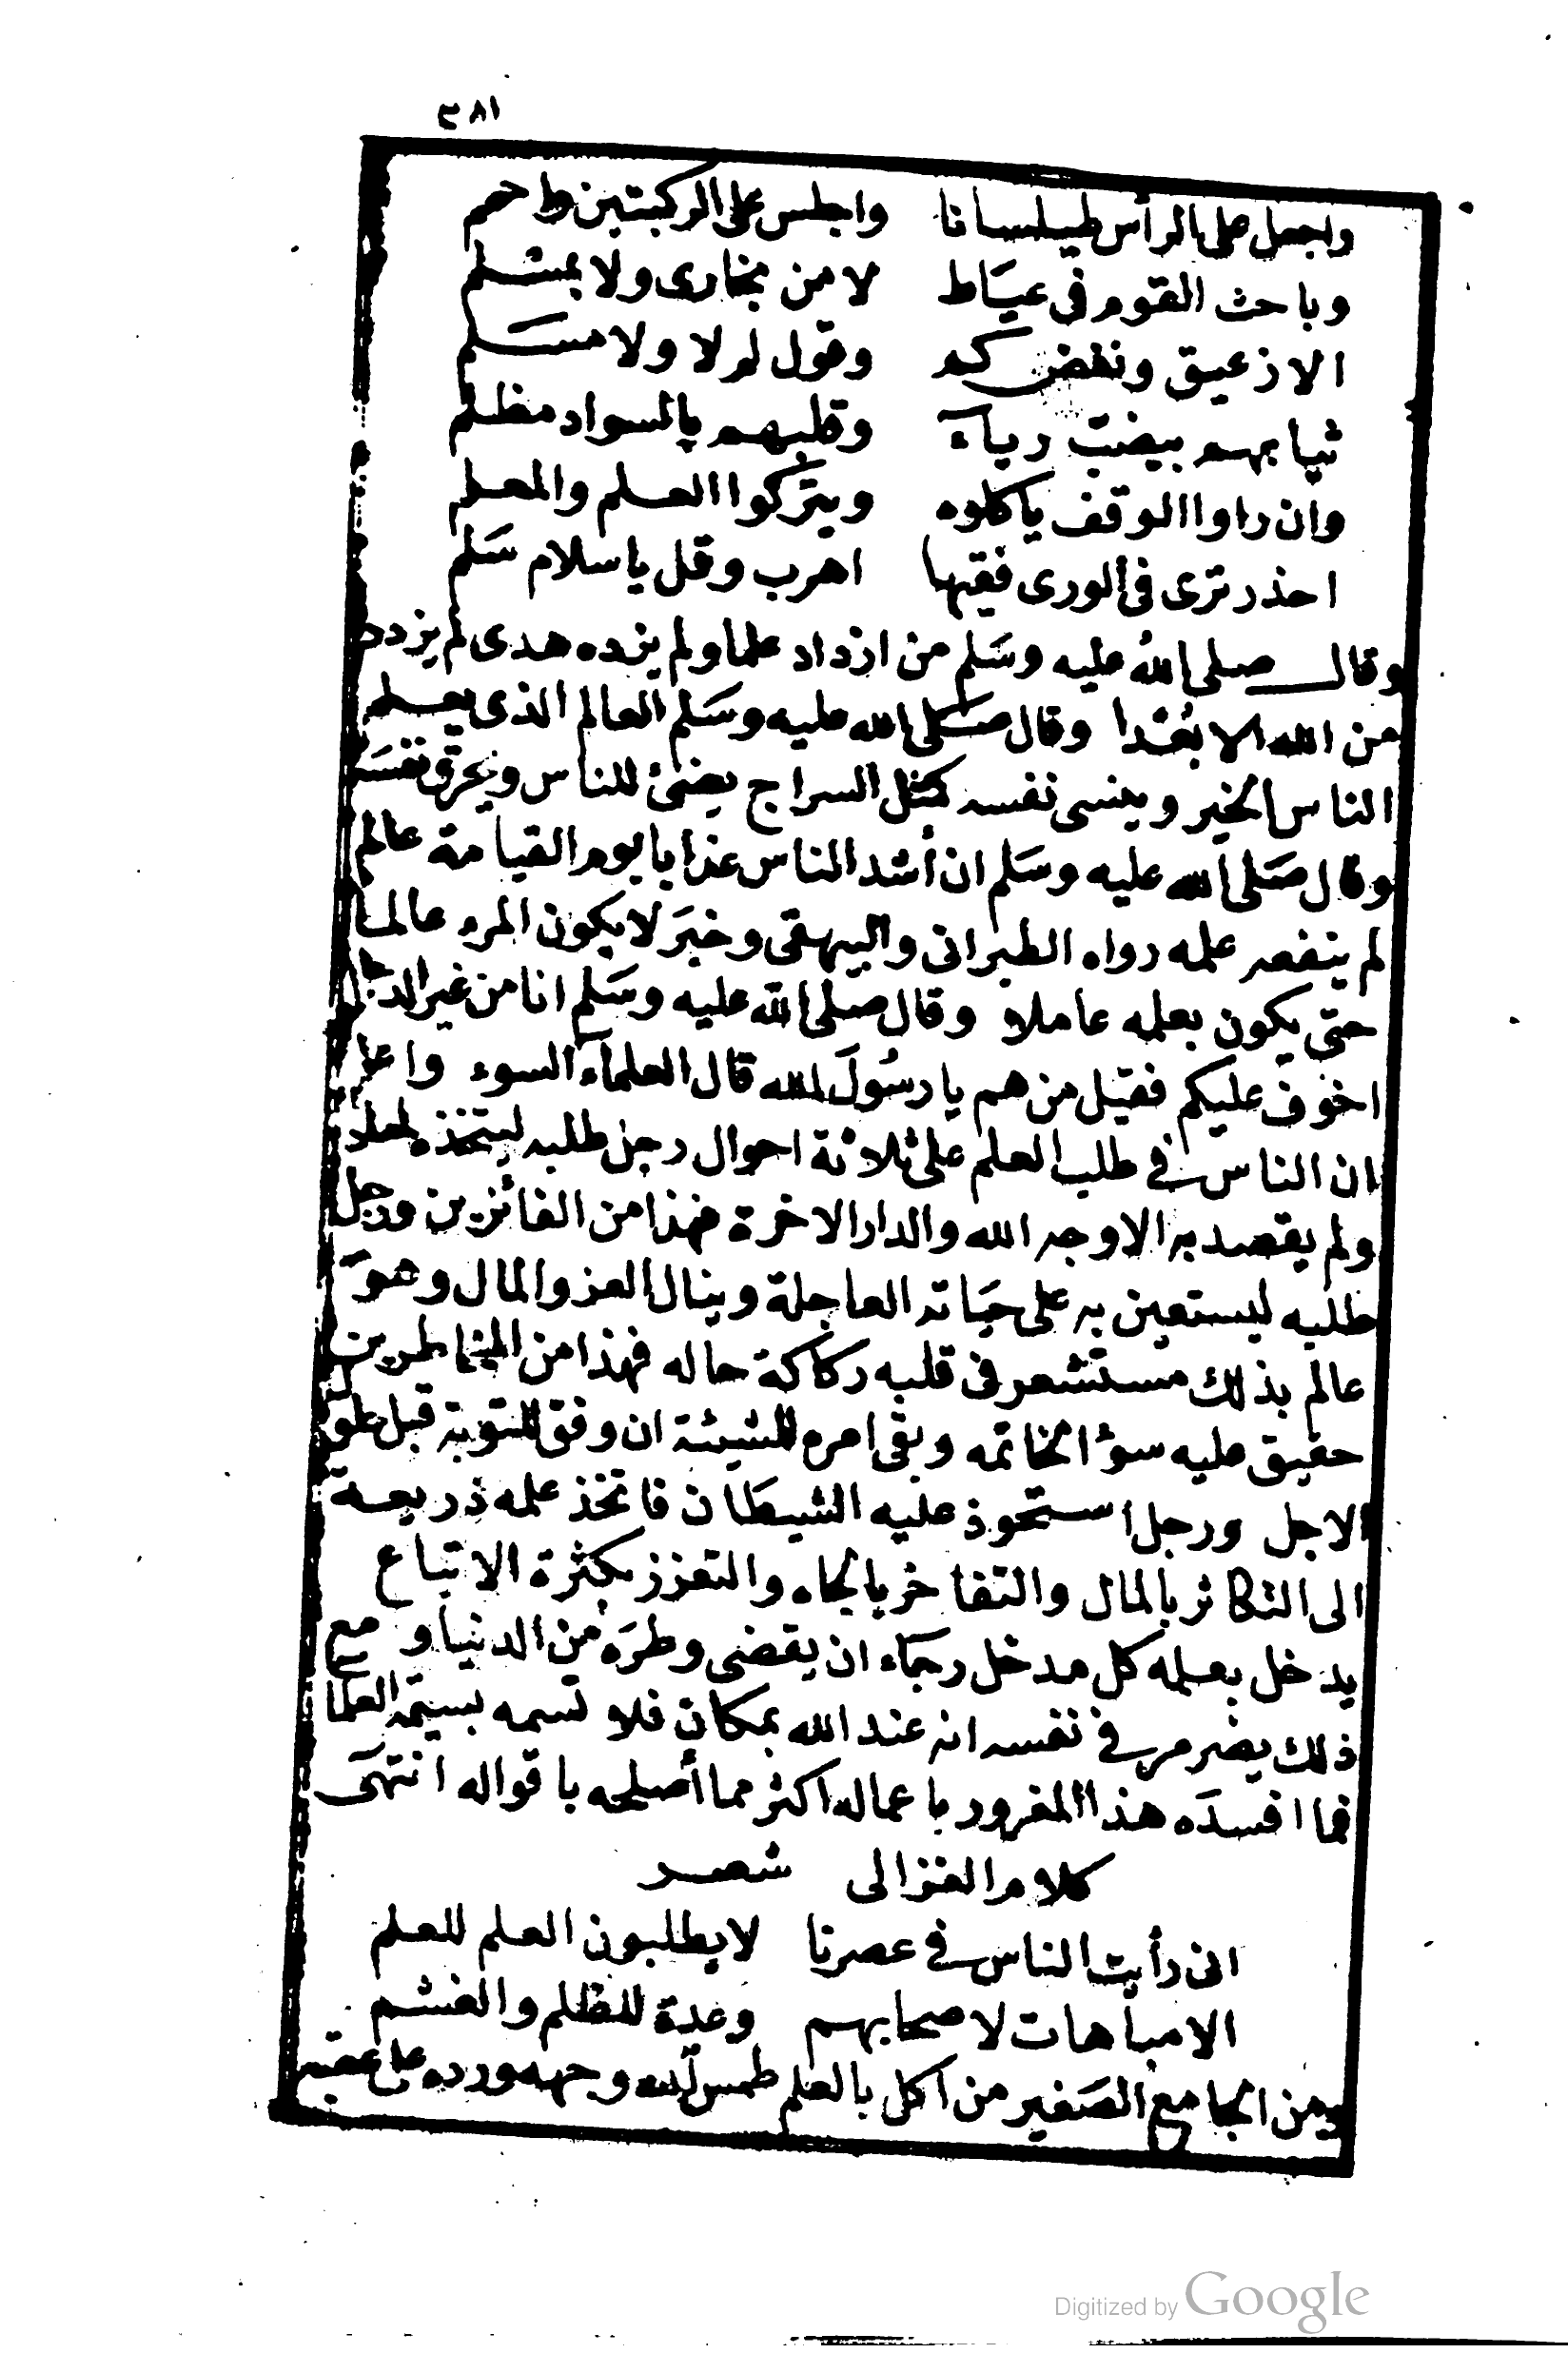 ٣٨١
واجعل على الرأس طيلسانا واجلس على الركبتين ط حم
وباحث القوم فى عياط لا من بخارى ولا بمسلم
الا زعيق ونفض كم وقول لم لا ولا مسلم
ثيابهم بيضت رياء وقلبهم بالسواد مظلم
وان راوا الوقف ياكلوه ويتركوا العلم والمعلم
احذر ترى فى الورى فقيها اهرب وقل يا سلام سلم
وقال صلى الله عليه وسلم من ازداد علما ولم يزده هدى لم يزدد
من الله الا بعدا وقال صلى الله عليه وسلم العالم الذى يعلم
الناس الخير وينسى نفسه كمثل السراج يضئ للناس ويحرق نفسه
وقال صلى الله عليه وسلم ان أشد الناس عذابا يوم القيامة عالم
لم ينفعه علمه رواه الطبرانى والبيهقى وخبر لا يكون المرء عالما
حتى يكون بعلمه عاملا وقال صلى الله عليه وسلم انا من غير الدجال
اخوف عليكم فقيل من هم يا رسول الله قال العلماء السوء واعلم
ان الناس فى طلب العلم على ثلاثة احوال رجل طلبه ليتخذه
ولم يقصد به الا وجه الله والدار الاخرة فهذا من الفائزين ورجل
طلبه ليستعين به على حياته العاجلة وينال العز والمال وهو
عالم بذلك مستشعر فى قلبه ركاكة حاله فهذا من المخاطرين
حقيق عليه سوء الخاتمه وبقى امره للمشيئة ان وفق للتوبة قبل حلول
الاجل ورجل استحوذ عليه الشيطان فاتخذ علمه ذريعة
الى التكاثر بالمال والتفاخر بالجاه والتعزز بكثرة الاتباع
يدخل بعلمه كل مدخل رجاء ان يقضى وطره من الدنيا و مع
ذلك يضمر فى نفسه انه عند الله بمكان فلا تسمه بسيمة العلما
فما افسده هذا المغرور باعماله اكثر مما أصلحه باقواله انتهى
كلام الغزالى شعر
انى رأيت الناس فى عصرنا لا يطلبون العلم للعلم
الا مباهات لاصحابهم وعدة للظلم والغشم
ومن الجامع الصغير من اكل بالعلم طمس الله وجهه ورده على عقبيه
Digitized by Google